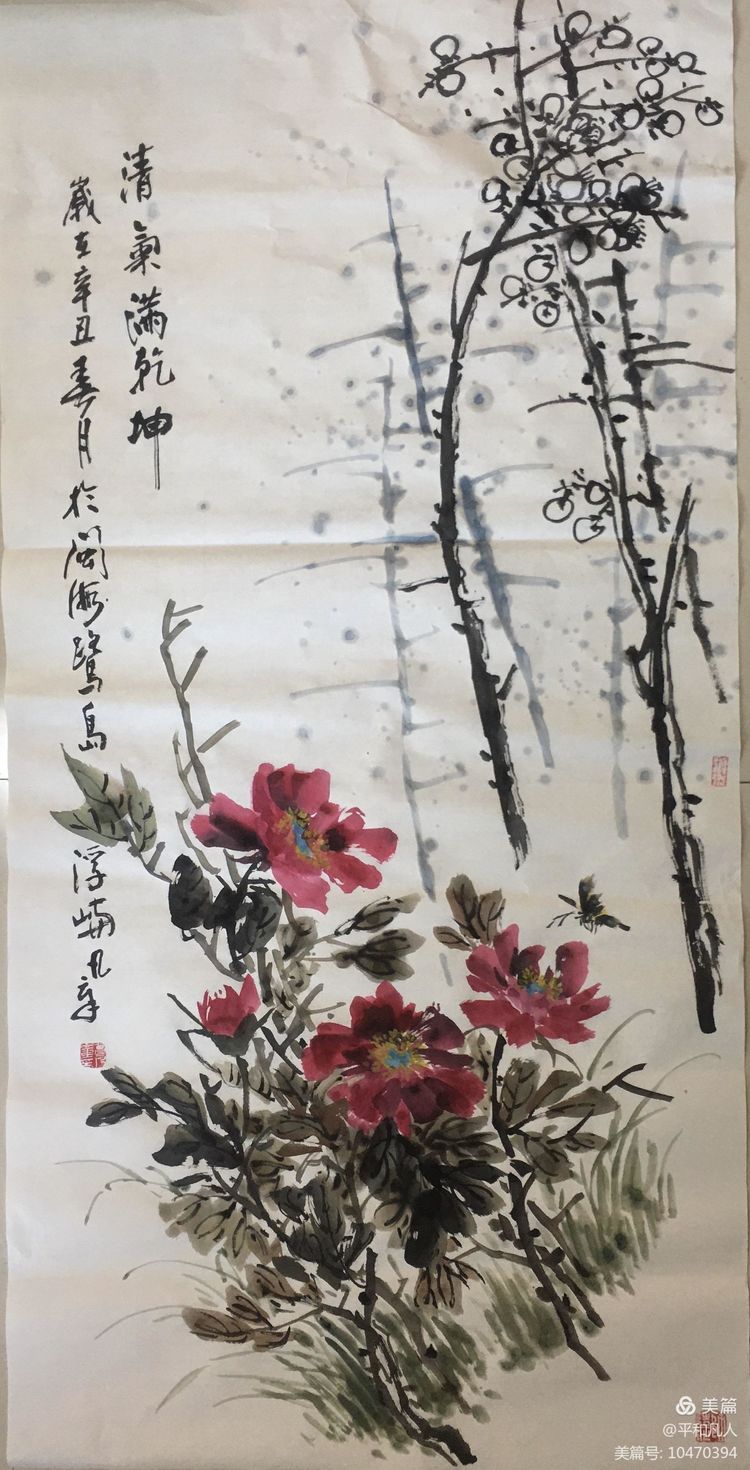 清氣滿乾坤
歲在辛丑春月於閩海鷺島
浮嶼凡辛
美篇
@平和凡人
美篇号: 10470394